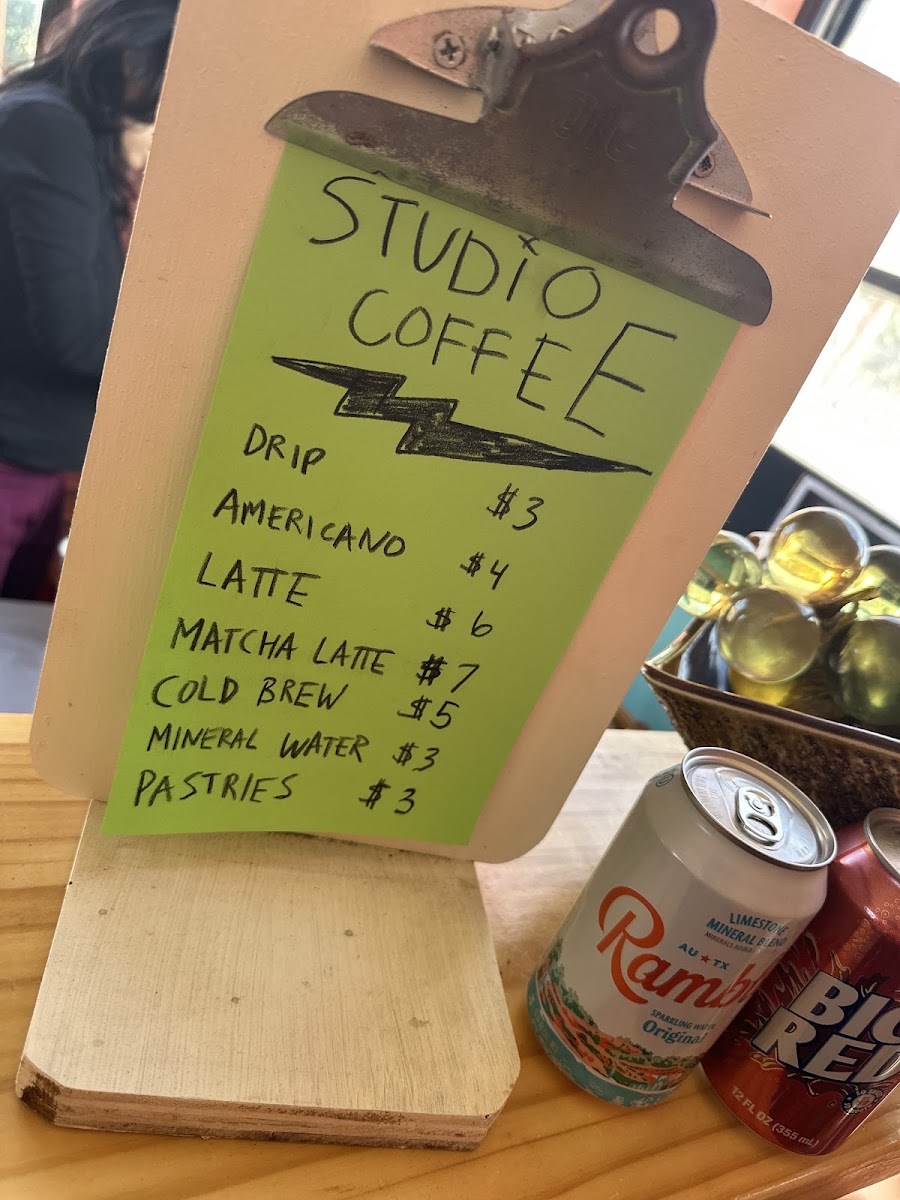 STUDIO
COFFEE
DRIP $3
AMERICANO $4
LATTE $6
MATCHA LATTE $7
COLD BREW $5
MINERAL WATER $3
PASTRIES $3
LIMESTONE
MINERAL BLEND
AU★TX
Rambl
SPARKLING WATER
Original
BIG
RED
12 FL OZ (355 mL)